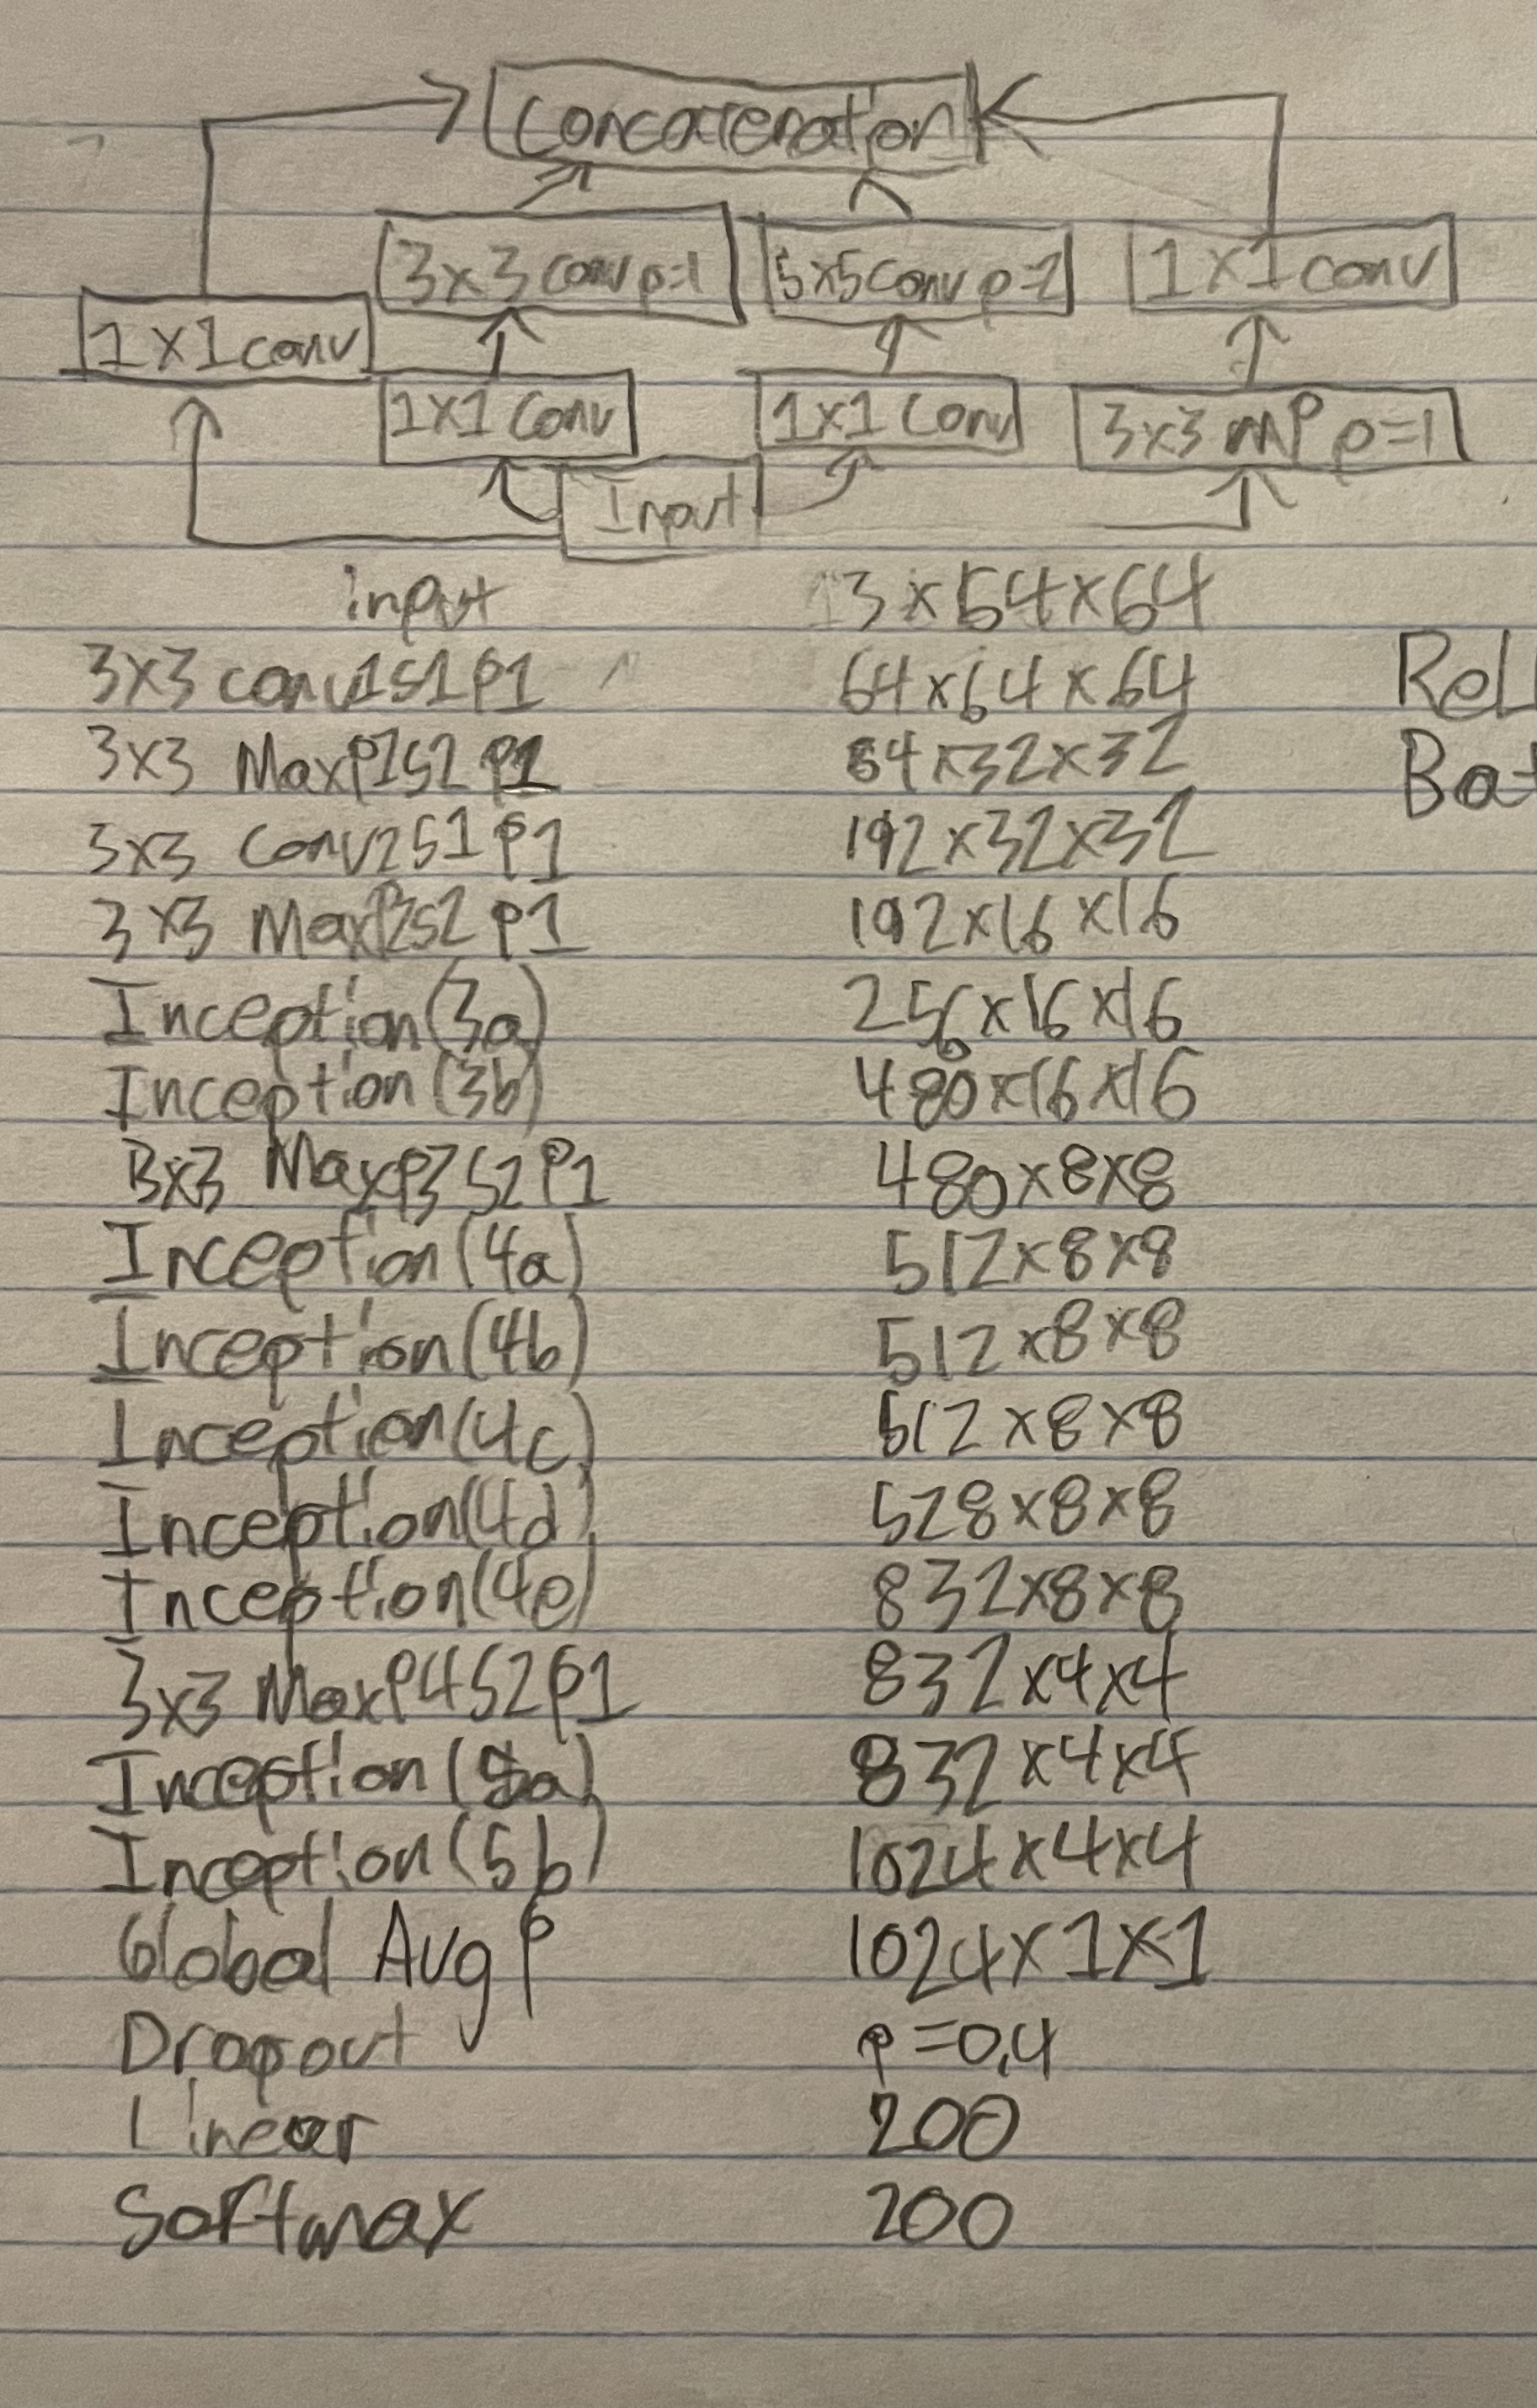 concatenation
3x3 conv p=1 5x5 conv p=2 1x1 conv
1x1 conv
1x1 conv 1x1 conv 3x3 MP p=1
Input
input 3x64x64
3x3 conv1s1p1 64x64x64 ReL
3x3 MaxP1s2 p1 64x32x32 Bat
3x3 conv2s1 p1 192x32x32
3x3 MaxP2s2 p1 192x16x16
Inception(3a) 256x16x16
Inception(3b) 480x16x16
3x3 MaxP3 s2 p1 480x8x8
Inception(4a) 512x8x8
Inception(4b) 512x8x8
Inception(4c) 512x8x8
Inception(4d) 528x8x8
Inception(4e) 832x8x8
3x3 MaxP4s2p1 832x4x4
Inception(5a) 832x4x4
Inception(5b) 1024x4x4
Global AvgP 1024x1x1
Dropout p=0.4
Linear 200
Softmax 200